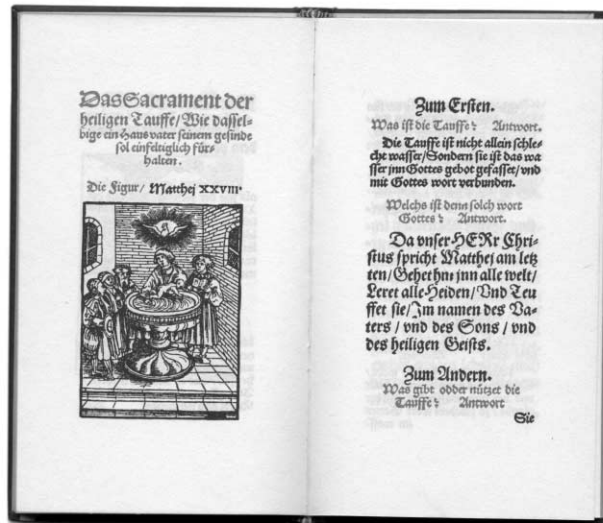 Das Sacrament der
heiligen Tauffe/Wie dassel-
bige ein Haus vater seinem gesinde
sol einfeltiglich für-
halten.
Die Figur/ Matthej XXVIII.
Zum Ersten.
Was ist die Tauffe? Antwort.
Die Tauffe ist nicht allein schle-
cht wasser/Sondern sie ist das wa
sser jnn Gottes gebot gefasset/vnd
mit Gottes wort verbunden.
Welchs ist denn solch wort
Gottes? Antwort.
Da vnser HERr Chri-
stus spricht Matthej am letz
ten/Gehet hin jnn alle welt/
Leret alle Heiden/Vnd Teu
ffet sie/Im namen des Va-
ters / vnd des Sons / vnd
des heiligen Geists.
Zum Andern.
Was gibt odder nützet die
Tauffe? Antwort
Sie